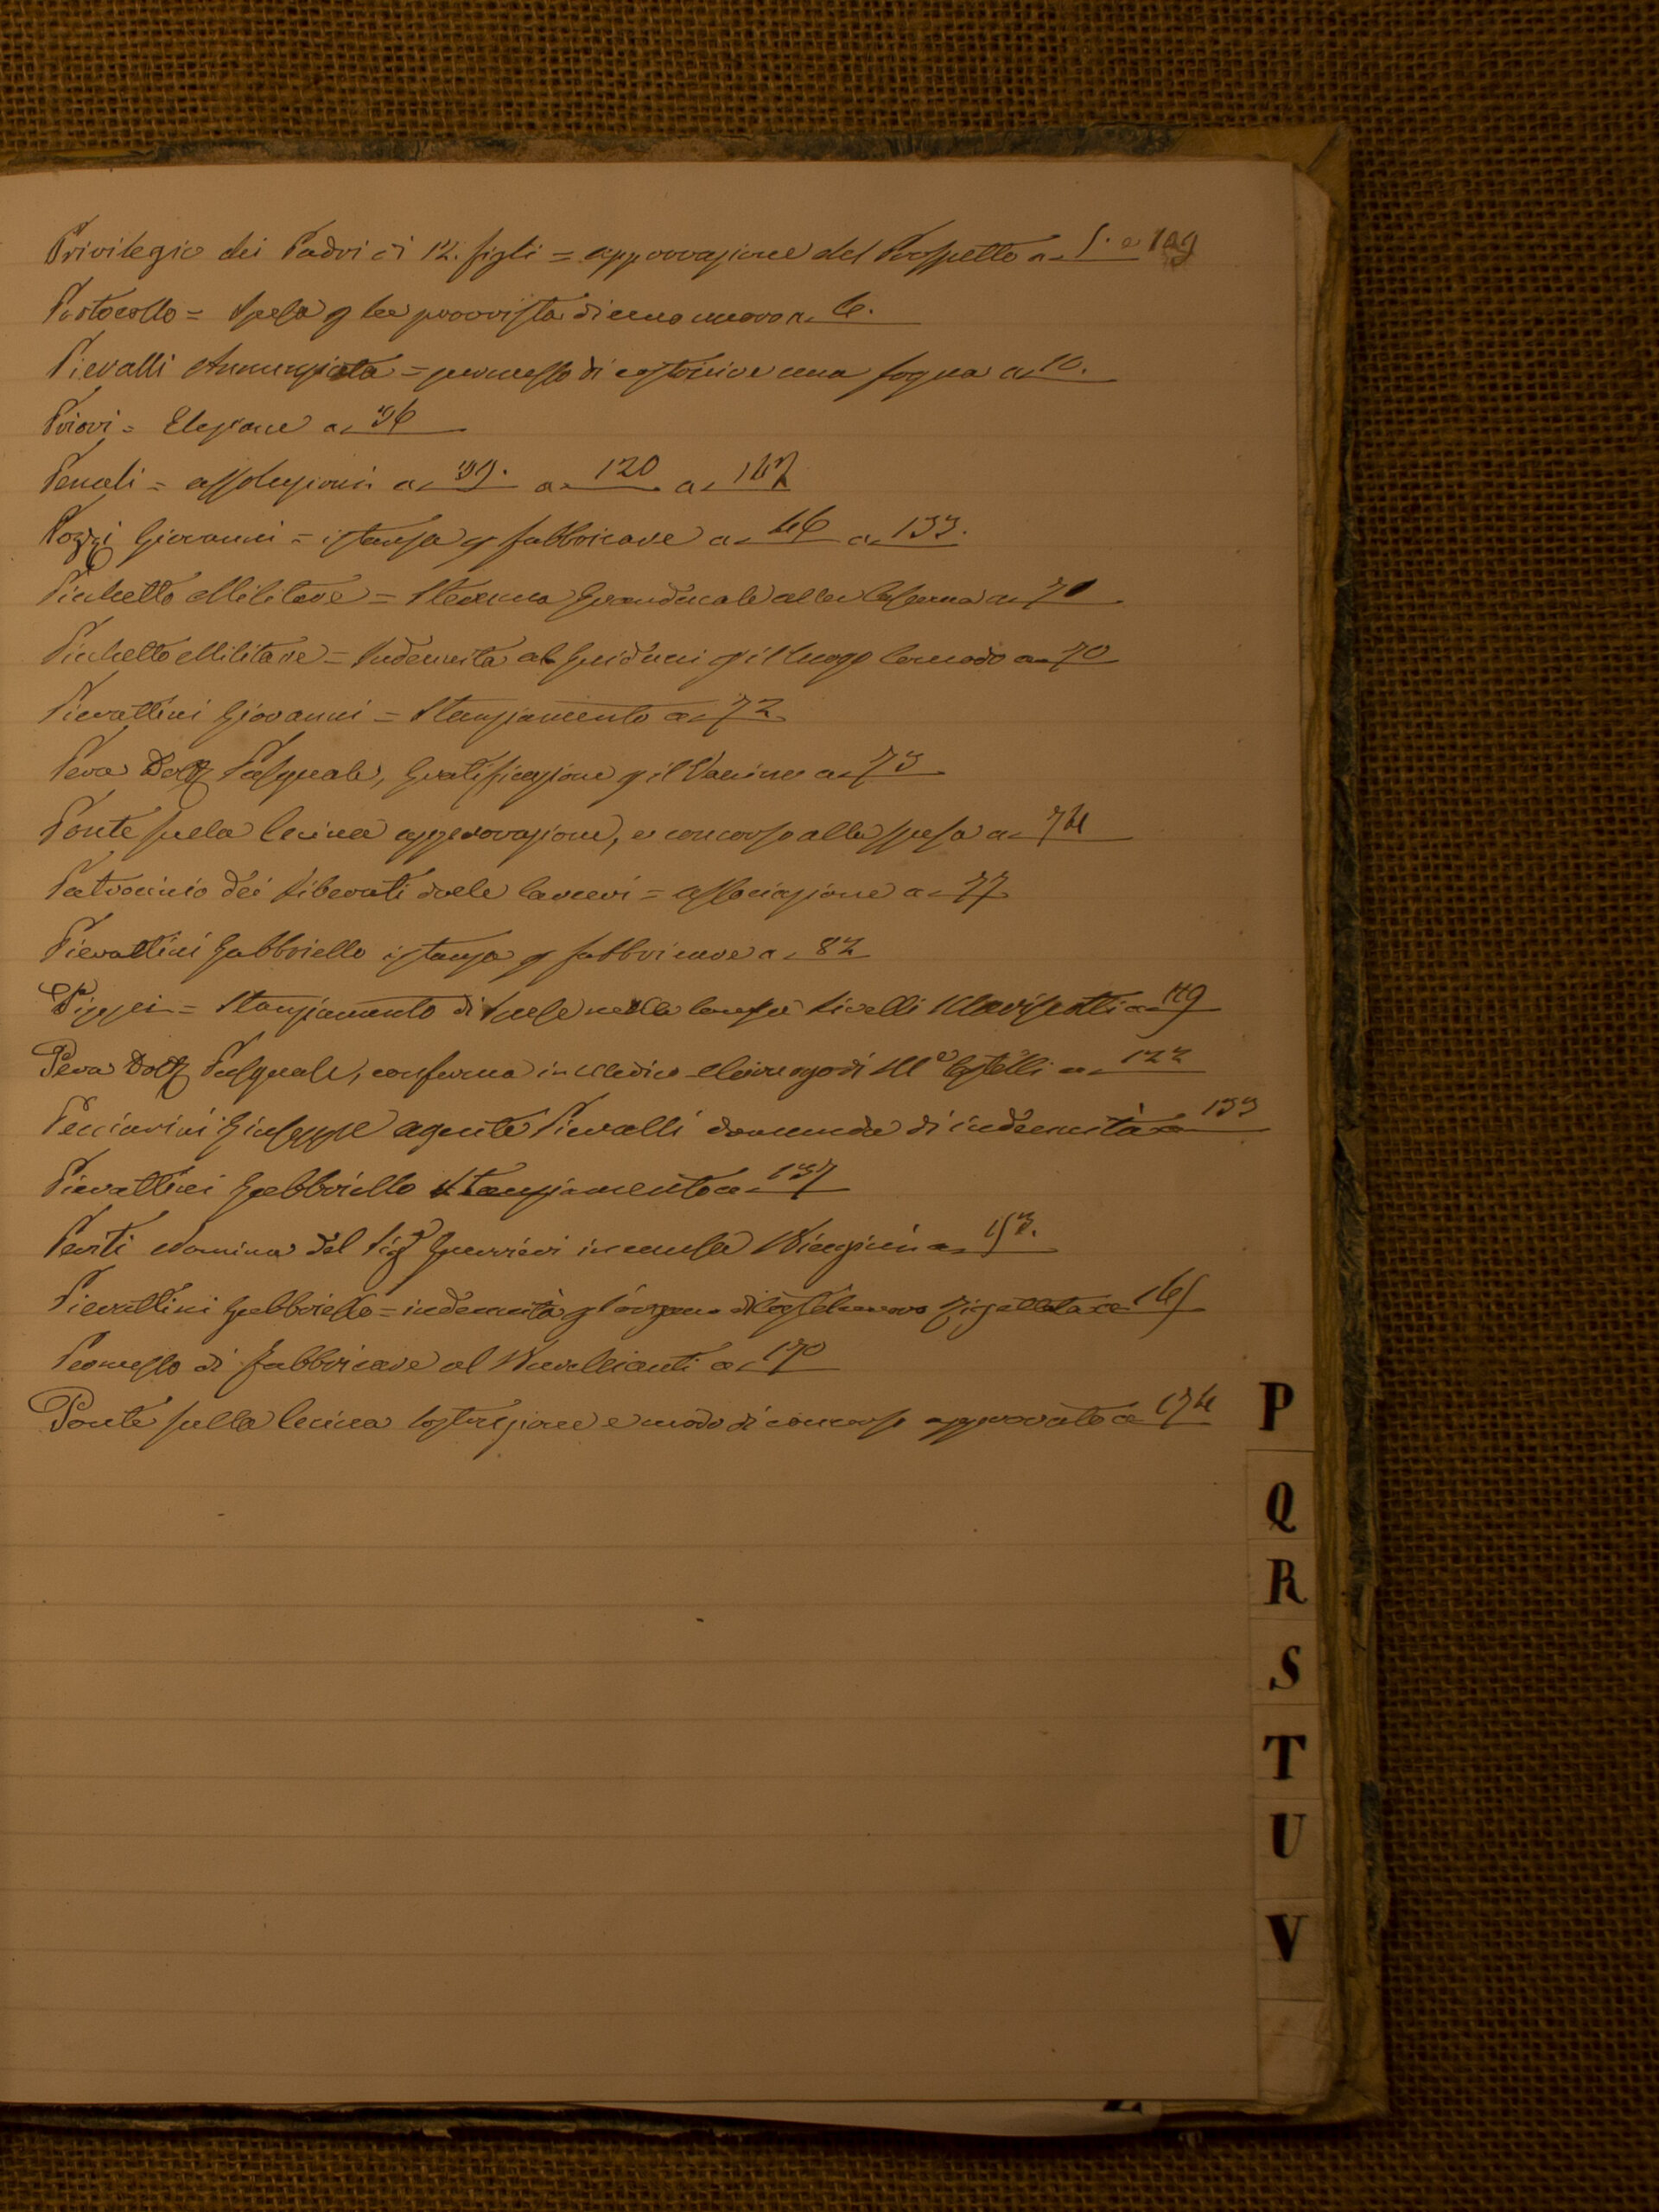 Privilegio dei Padri di 12. figli = approvazione del Prospetto a 5. e 109
Protocollo = Spesa p la provvista di uno nuovo a 6.
Pieralli Annunziata = permesso di costruire una fogna a 10.
Priori = Elezione a 36
Penali = assoluzioni a 39. a 120 a
Pozzi Giovanni = istanza p fabbricare a 46 a 133.
Picchetto Militare = Stemma Granducale alla Caserma a
Picchetto Militare = Indennita al Guiducci p il luogo Comodo a 70
Pierattini Giovanni = Stanziamento a 72
Pera Dott Pasquale, Gratificazione p il Vaccino a 73
Ponte sulla Cecina approvazione, e concorso alla spesa a 74
Patrocinio dei Liberati dalle Carceri = associazione a 77
Pierattini Gabbriello istanza p fabbricare a 82
= Stanziamento di Spese nella Causa Livelli a 119
Pera Dott Pasquale, conferma in Medico Chirurgo di M.e Castelli a 122
Pecciarini Giuseppe agente Pieralli domanda di indennità a 133
Pierattini Gabbriello Stanziamento a 137
Periti Nomina del Sigr Guerrieri in causa a 153.
Pierattini Gabbriello = indennità p Castelnuovo a 165
Permesso di fabbricare al a 170
Ponte sulla Cecina Costruzione e modo di concorso approvato a 174
P
Q
R
S
T
U
V